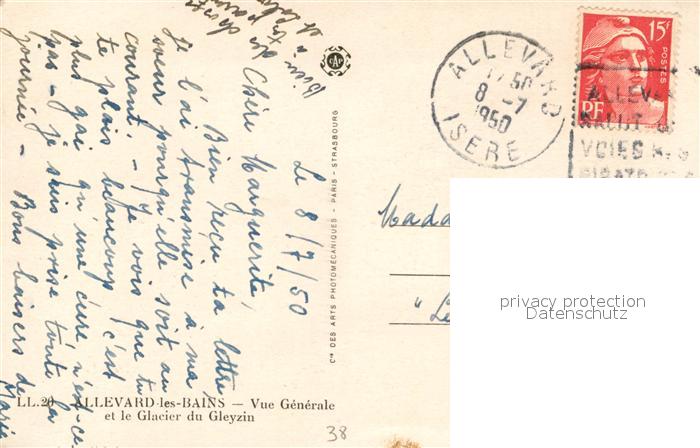 Le 8/7/50
Chère Marguerite,
Bien reçu ta lettre,
Je l'ai transmise à ma
soeur pour qu'elle soit au
courant. - Je vois que tu
te plais beaucoup c'est
plus gai qu'une cure n'est-ce
pas - je suis prise toute la
journée - Bons baisers de
Marie
Bien des choses
à tes parents
et
LL.20 ALLEVARD-les-BAINS — Vue Générale
et le Glacier du Gleyzin
Cie DES ARTS PHOTOMÉCANIQUES - PARIS - STRASBOURG
CAP
ALLEVARD
17 50
8 -7
1950
ISERE
15F
POSTES
RF
ALLEV
VOIES R
Mada
"Le
privacy protection
Datenschutz
38